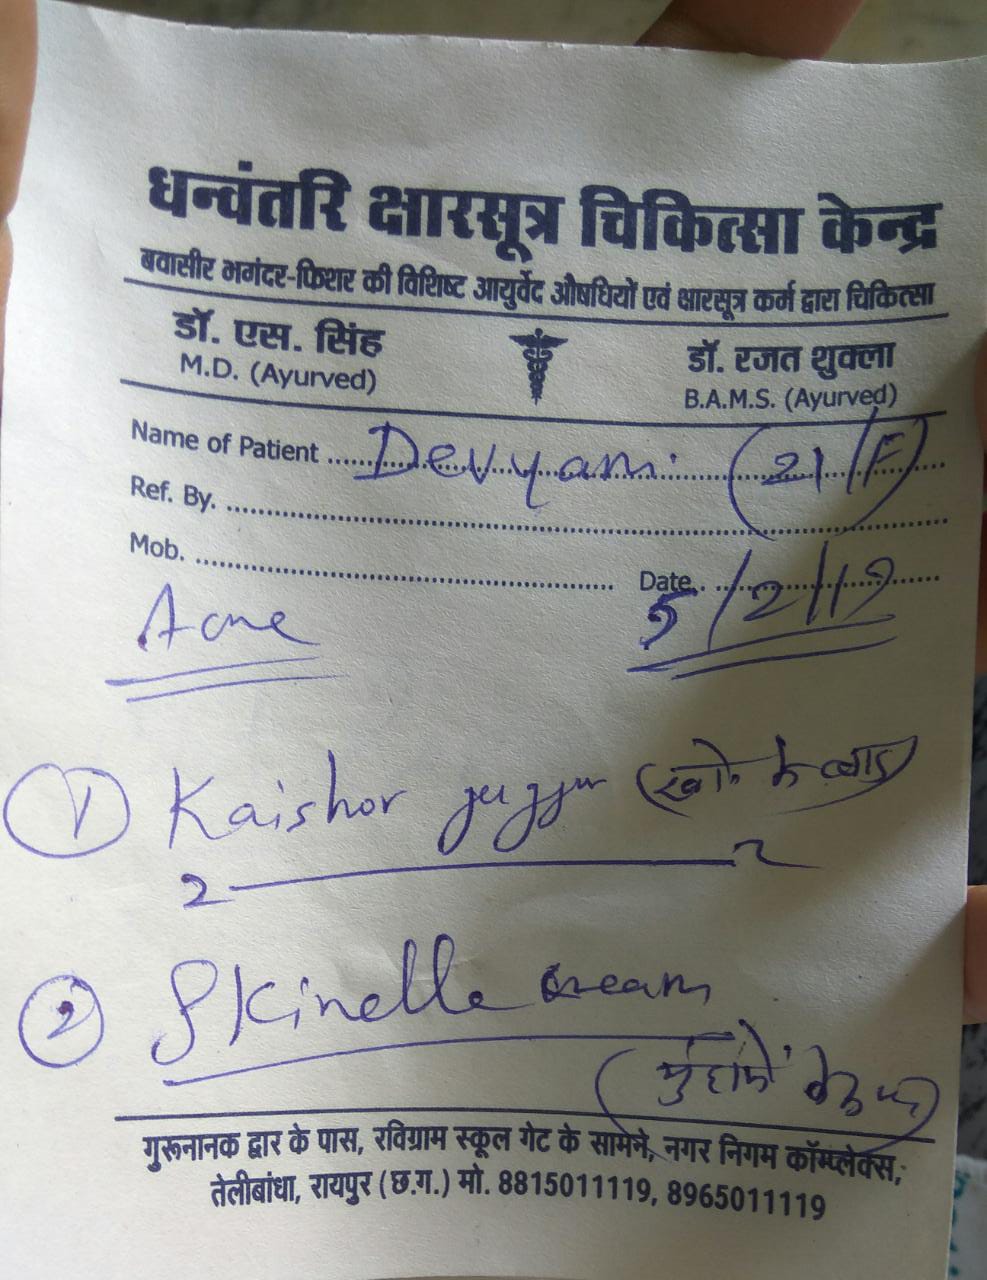 धन्वंतरि क्षारसूत्र चिकित्सा केन्द्र
बवासीर भगंदर-फिशर की विशिष्ट आयुर्वेद औषधियों एवं क्षारसूत्र कर्म द्वारा चिकित्सा
डॉ. एस. सिंह
M.D. (Ayurved)
डॉ. रजत शुक्ला
B.A.M.S. (Ayurved)
Name of Patient Devyani (21/F)
Ref. By.
Mob. Date 5/2/19
Acne
1 Kaishor guggur (खाने के बाद)
2 — 2
2 Skinelle cream
(मुंहासे के
गुरूनानक द्वार के पास, रविग्राम स्कूल गेट के सामने, नगर निगम कॉम्प्लेक्स,
तेलीबांधा, रायपुर (छ.ग.) मो. 8815011119, 8965011119